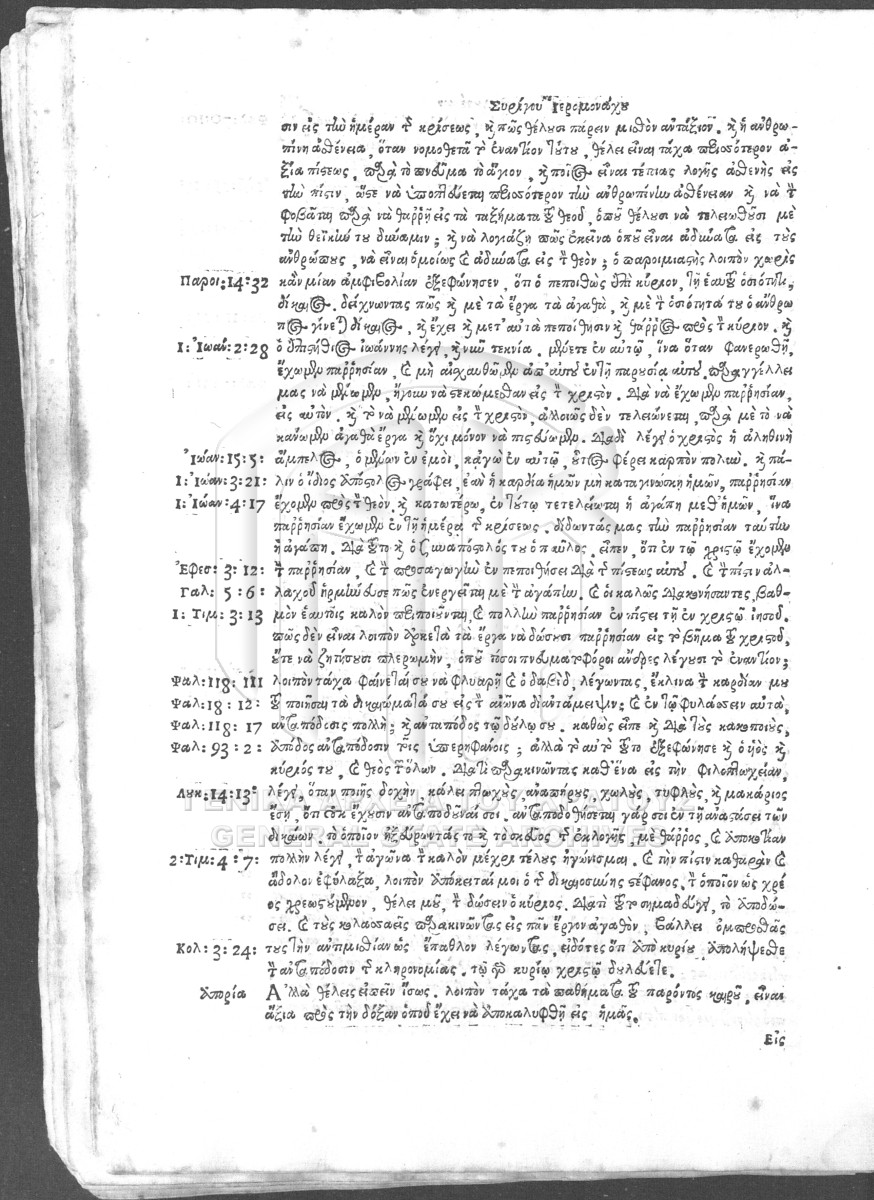 Συρίγου Ἱερομονάχου
σιν εἰς τὴν ἡμέραν τῆς κρίσεως, καὶ πῶς θέλουσι πάρειν μισθὸν ἀντάξιον. καὶ ἡ ἀνθρω-
πίνη ἀσθένεια, ὅταν νομοθετᾶ τὸ ἐναντίον τούτου, θέλει εἶναι τάχα περισσότερον ἀ-
ξία πίστεως, παρὰ τὸ πνεῦμα τὸ ἅγιον, καὶ ποῖος εἶναι τέτοιας λογῆς ἀσθενὴς εἰς
τὴν πίστιν, ὥστε νὰ ὑποπτεύεται περισσότερον τὴν ἀνθρωπίνην ἀσθένειαν καὶ νὰ τὴν
φοβᾶται, παρὰ νὰ θαρρῇ εἰς τὰ ταξήματα τοῦ θεοῦ, ὁποῦ θέλουσι νὰ τελειωθοῦσι μὲ
τὴν θεϊκήν του δύναμιν; καὶ νὰ λογιάζῃ πῶς ἐκεῖνα ὁποῦ εἶναι ἀδύνατα εἰς τοὺς
ἀνθρώπους, νὰ εἶναι ὁμοίως καὶ ἀδύνατα εἰς τὸν θεόν; ὁ παροιμιαστὴς λοιπὸν χωρὶς
Παροι: 14: 32 κᾂν μίαν ἀμφιβολίαν ἐξεφώνησεν, ὅτι ὁ πεποιθὼς ἐπὶ κύριον, τῇ ἑαυτοῦ ὁσιότητι,
δίκαιος. δείχνωντας πῶς καὶ μὲ τὰ ἔργα τὰ ἀγαθὰ, καὶ μὲ τὴν ὁσιότητά του ὁ ἄνθρω
πος γίνεται δίκαιος, καὶ ἔχει καὶ μετ' αὐτὰ πεποίθησιν καὶ θάρρος πρὸς τὸν κύριον. καὶ
Ι: Ἰωάν: 2: 28 ὁ ἐπιστήθιος ἰωάννης λέγει, καὶ νῦν τεκνία. μένετε ἐν αὐτῷ, ἵνα ὅταν φανερωθῇ,
ἔχωμεν παρρησίαν, καὶ μὴ αἰσχυνθῶμεν ἀπ' αὐτοῦ ἐν τῇ παρουσίᾳ αὐτοῦ. παραγγέλλει
μας νὰ μένωμεν, ἤγουν νὰ στεκώμεθαν εἰς τὸν χριστόν. διὰ νὰ ἔχωμεν παρρησίαν,
εἰς αὐτόν. καὶ τὸ νὰ μένωμεν εἰς τὸν χριστὸν, ἀλλοιῶς δὲν τελειώνεται, παρὰ μὲ τὸ νὰ
κάνωμεν ἀγαθὰ ἔργα καὶ ὄχι μόνον νὰ πιστεύωμεν. διατὶ λέγει ὁ χριστὸς ἡ ἀληθινὴ
Ἰωάν: 15: 5: ἄμπελος, ὁ μένων ἐν ἐμοὶ, κᾀγὼ ἐν αὐτῷ, οὗτος φέρει καρπὸν πολύν. καὶ πά-
Ι: Ἰωάν: 3: 21: λιν ὁ ἴδιος ἀπόστολος γράφει, ἐὰν ἡ καρδία ἡμῶν μὴ καταγινώσκῃ ἡμῶν, παρρησίαν
Ι: Ἰωάν: 4: 17 ἔχομεν πρὸς τὸν θεόν. καὶ κατωτέρω, ἐν τούτῳ τετελείωται ἡ ἀγάπη μεθ' ἡμῶν, ἵνα
παρρησίαν ἔχωμεν ἐν τῇ ἡμέρᾳ τῆς κρίσεως. δίδωντάς μας τὴν παρρησίαν ταύτην
ἡ ἀγάπη. διὰ τοῦτο καὶ ὁ συναπόστολός του ὁ παῦλος. εἶπεν, ὅτι ἐν τῷ χριστῷ ἔχομεν
Ἐφεσ: 3: 12: τὴν παρρησίαν, καὶ τὴν προσαγωγὴν ἐν πεποιθήσει διὰ τῆς πίστεως αὐτοῦ. καὶ τὴν πίστιν ἀλ-
Γαλ: 5: 6: λαχοῦ ἡρμήνευσε πῶς ἐνεργεῖται μὲ τὴν ἀγάπην. καὶ οἱ καλῶς διακονήσαντες, βαθ-
Ι: Τιμ: 3: 13 μὸν ἑαυτοῖς καλὸν περιποιοῦνται, καὶ πολλὴν παρρησίαν ἐν πίστει τῇ ἐν χριστῷ ἰησοῦ.
πῶς δὲν εἶναι λοιπὸν ἀρκετὰ τὰ ἔργα νὰ δώσουσι παρρησίαν εἰς τὸ βῆμα τοῦ χριστοῦ,
οὔτε νὰ ζητήσουσι πλερωμὴν, ὁποῦ τόσοι πνευματοφόροι ἄνδρες λέγουσι τὸ ἐναντίον;
Ψαλ: 118: 111 λοιπὸν τάχα φαίνεταί σου νὰ φλυαρῇ καὶ ὁ δαβὶδ, λέγωντας, ἔκλινα τὴν καρδίαν μου
Ψαλ: 18: 12: τοῦ ποιῆσαι τὰ δικαιώματά σου εἰς τὸν αἰῶνα δι' ἀντάμειψιν; καὶ ἐν τῷ φυλάσσειν αὐτὰ,
Ψαλ: 118: 17 ἀνταπόδοσις πολλή; καὶ ἀνταπόδος τῷ δούλῳ σου. καθὼς εἶπε καὶ διὰ τοὺς κακοποιοὺς,
Ψαλ: 93: 2: ἀπόδος ἀνταπόδοσιν τοῖς ὑπερηφάνοις; ἀλλὰ τὸ αὐτὸ τοῦτο ἐξεφώνησε καὶ ὁ υἱὸς καὶ
κύριός του, καὶ θεὸς τῶν ὅλων. διατὶ παρακινῶντας καθ' ἕνα εἰς τὴν φιλοπτωχείαν,
Λουκ: 14: 13: λέγει, ὅταν ποιῇς δοχὴν, κάλει πτωχοὺς, ἀναπήρους, χωλοὺς, τυφλοὺς, καὶ μακάριος
ἔσῃ, ὅτι οὐκ ἔχουσιν ἀνταποδοῦναί σοι. ἀνταποδοθήσεται γάρ σοι ἐν τῇ ἀναστάσει τῶν
δικαίων. τὸ ὁποῖον ἠξεύρωντάς το καὶ τὸ σκεῦος τῆς ἐκλογῆς, μὲ θάρρος, καὶ ἀποκοτίαν
2: Τιμ: 4: 7: πολλὴν λέγει, τὸν ἀγῶνα τὸν καλὸν μέχρι τέλους ἠγώνισμαι. καὶ τὴν πίστιν καθαρὰν καὶ
ἄδολον ἐφύλαξα, λοιπὸν ἀπόκειταί μοι ὁ τῆς δικαιοσύνης στέφανος. τὸν ὁποῖον ὡς χρέ
ος χρεωστούμενον, θέλει μοῦ τὸν δώσειν ὁ κύριος. διατὶ τοῦτο σημαδεύει, τὸ ἀποδώ-
σει. καὶ τοὺς κολασσαεῖς παρακινῶντας εἰς πᾶν ἔργον ἀγαθὸν, βάλλει ὀμπροσθάς
Κολ: 3: 24: τους τὴν ἀντιμισθίαν ὡς ἔπαθλον λέγωντας, εἰδότες ὅτι ἀπὸ κυρίου ἀπολήψεσθε
τὴν ἀνταπόδοσιν τῆς κληρονομίας. τῷ γὰρ κυρίῳ χριστῷ δουλεύετε.
ἀπορία Ἀλλὰ θέλεις εἰπεῖν ἴσως. λοιπὸν τάχα τὰ παθήματα τοῦ παρόντος καιροῦ, εἶναι
ἄξια πρὸς τὴν δόξαν ὁποῦ ἔχει νὰ ἀποκαλυφθῇ εἰς ἡμᾶς.
Εἰς
ΓΕΝΙΚΑ ΑΡΧΕΙΑ ΤΟΥ ΚΡΑΤΟΥΣ
GENERAL STATE ARCHIVES